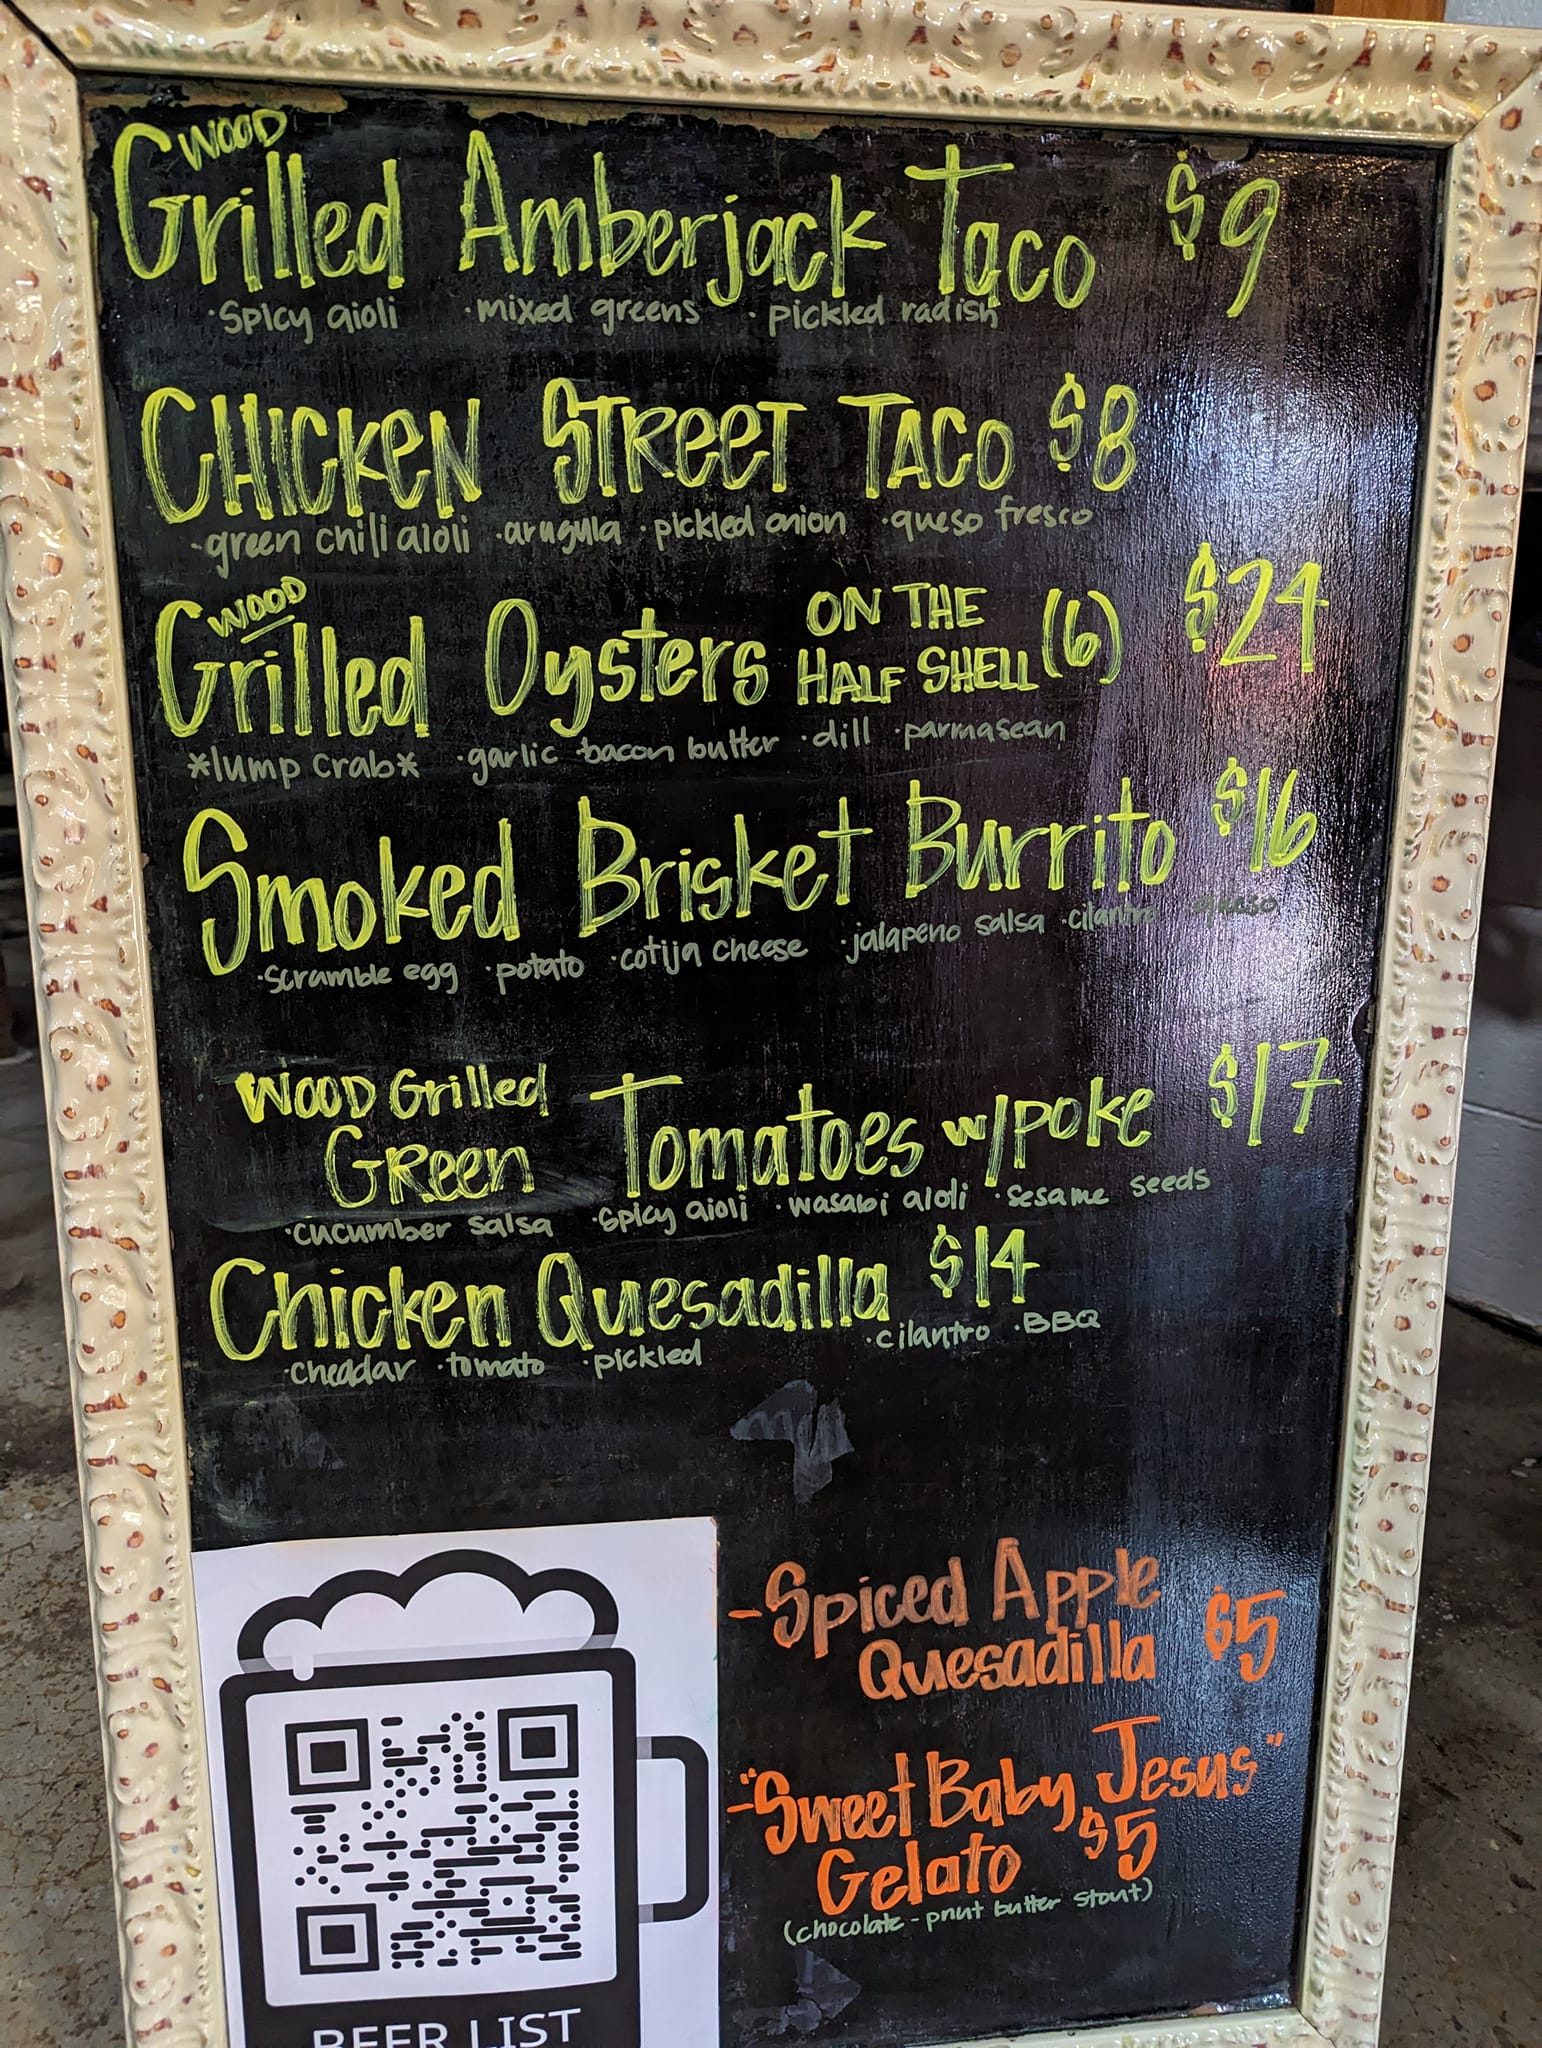 WOOD
Grilled Amberjack Taco $9
·Spicy aioli ·mixed greens ·pickled radish
CHICKEN STREET TACO $8
·green chili aioli ·arugula ·pickled onion ·queso fresco
WOOD
Grilled Oysters ON THE HALF SHELL (6) $24
*lump crab* ·garlic bacon butter ·dill ·parmasean
Smoked Brisket Burrito $16
·scramble egg ·potato ·cotija cheese ·jalapeno salsa ·cilantro queso
WOOD Grilled
GREEN Tomatoes w/poke $17
·cucumber salsa ·spicy aioli ·wasabi aioli ·sesame seeds
Chicken Quesadilla $14
·cheddar ·tomato ·pickled ·cilantro ·BBQ
-Spiced Apple
Quesadilla $5
-"Sweet Baby Jesus"
Gelato $5
(chocolate-pnut butter stout)
BEER LIST